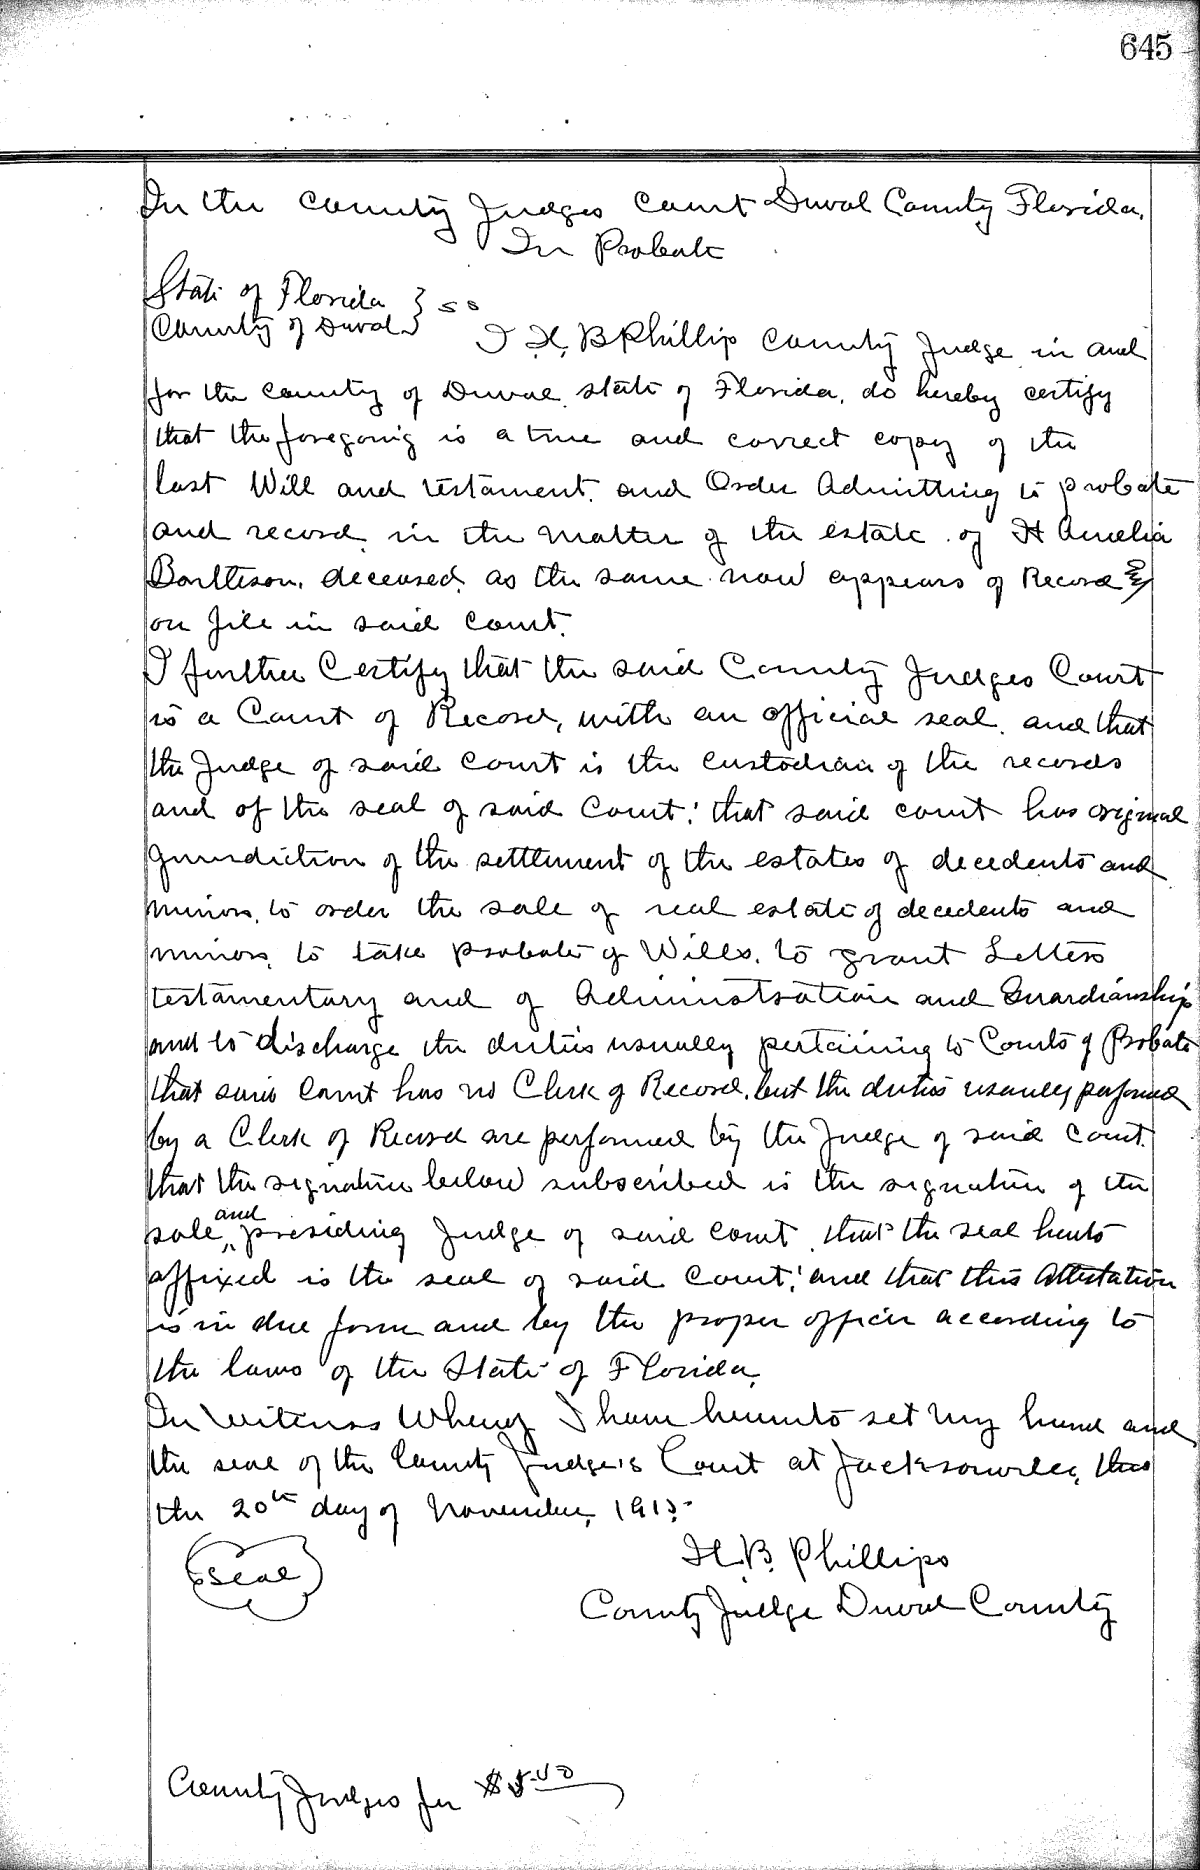 645
In the County Judges Court Duval County Florida.
In Probate
State of Florida } ss
County of Duval
I H. B Phillip County Judge in and
for the County of Duval State of Florida, do hereby certify
that the foregoing is a true and correct copy of the
last Will and testament. and Order Admitting to probate
and record, in the matter of the estate of H Amelia
deceased, as the same now appears of Record &
on file in said Court.
I further Certify that the said County Judges Court
is a Court of Record, with an official seal. and that
the Judge of said Court is the custodian of the records
and of the seal of said Court; that said court has original
Jurisdiction of the settlement of the estates of decedents and
minors, to order the sale of real estate of decedents and
minors, to take probate of Wills. to grant Letters
testamentary and of Administration and Guardianship
and to discharge the duties usually pertaining to Courts of Probate
that said Court has no Clerk of Record, but the duties usually performed
by a Clerk of Record are performed by the Judge of said Court.
that the signature below subscribed is the signature of the
sole and presiding Judge of said Court, that the seal hereto
affixed is the seal of said Court; and that this Attestation
is in due form and by the proper officer according to
the laws of the State of Florida,
In Witness Whereof I have hereunto set my hand and
the seal of the County Judge's Court at Jacksonville, this
the 20th day of November, 1913.
Seal
H. B. Phillips
County Judge Duval County
County Judges fee $5.00